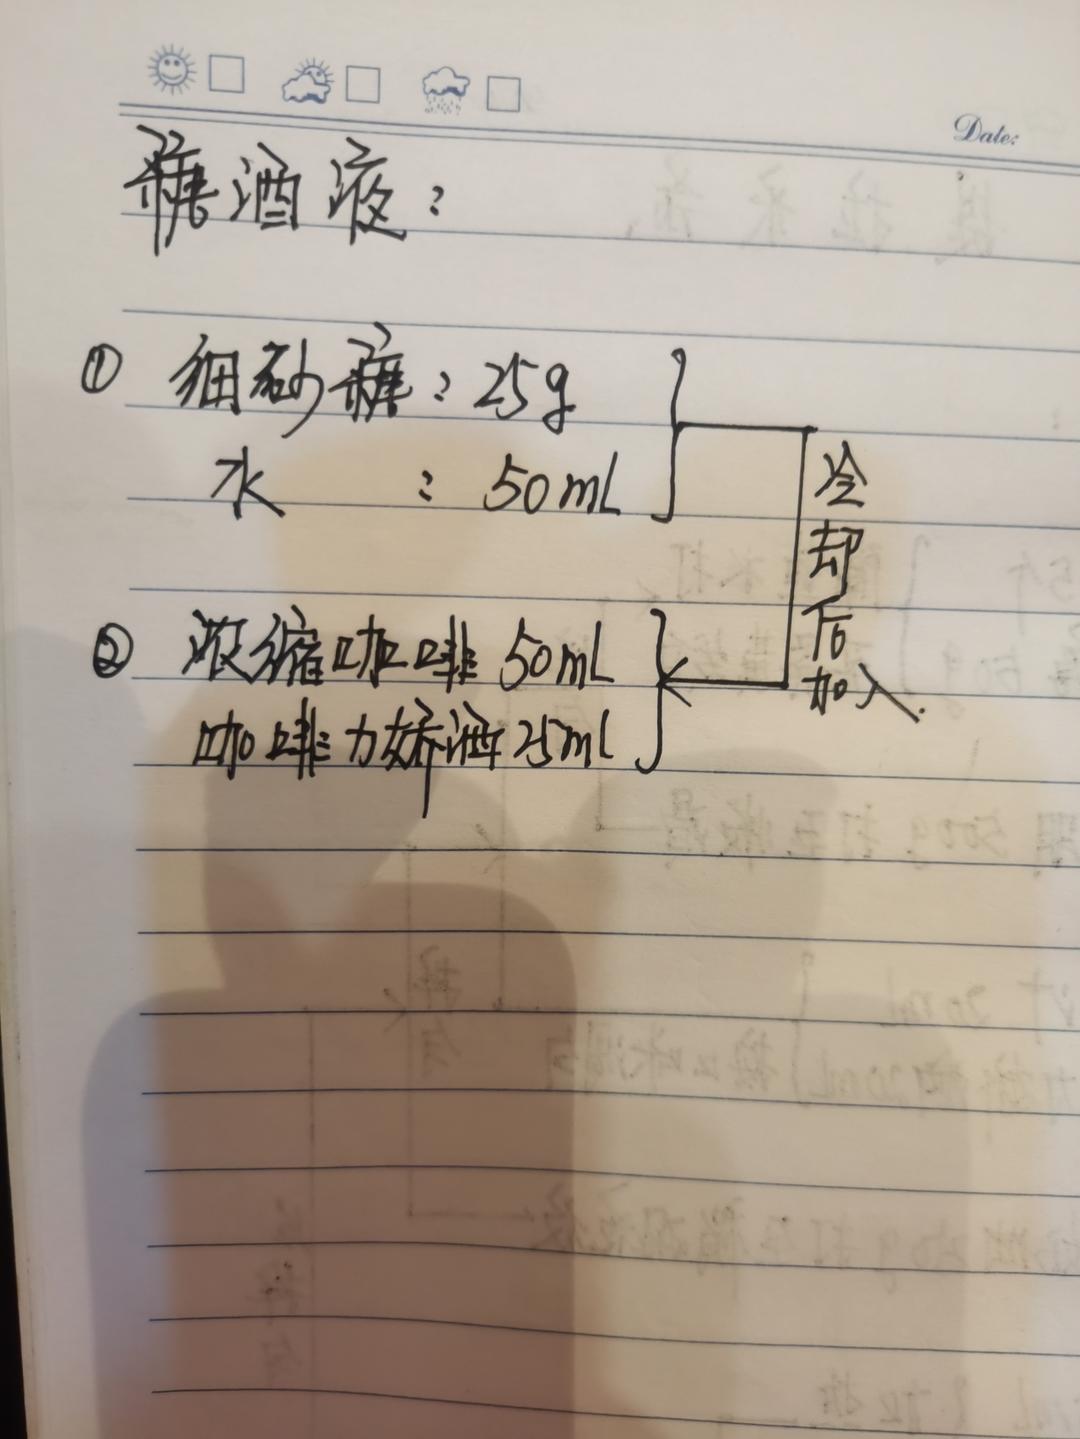 Date:
糖酒液：
① 细砂糖：25g
水 ：50mL
冷却后加入.
② 浓缩咖啡 50mL
咖啡力娇酒 25mL